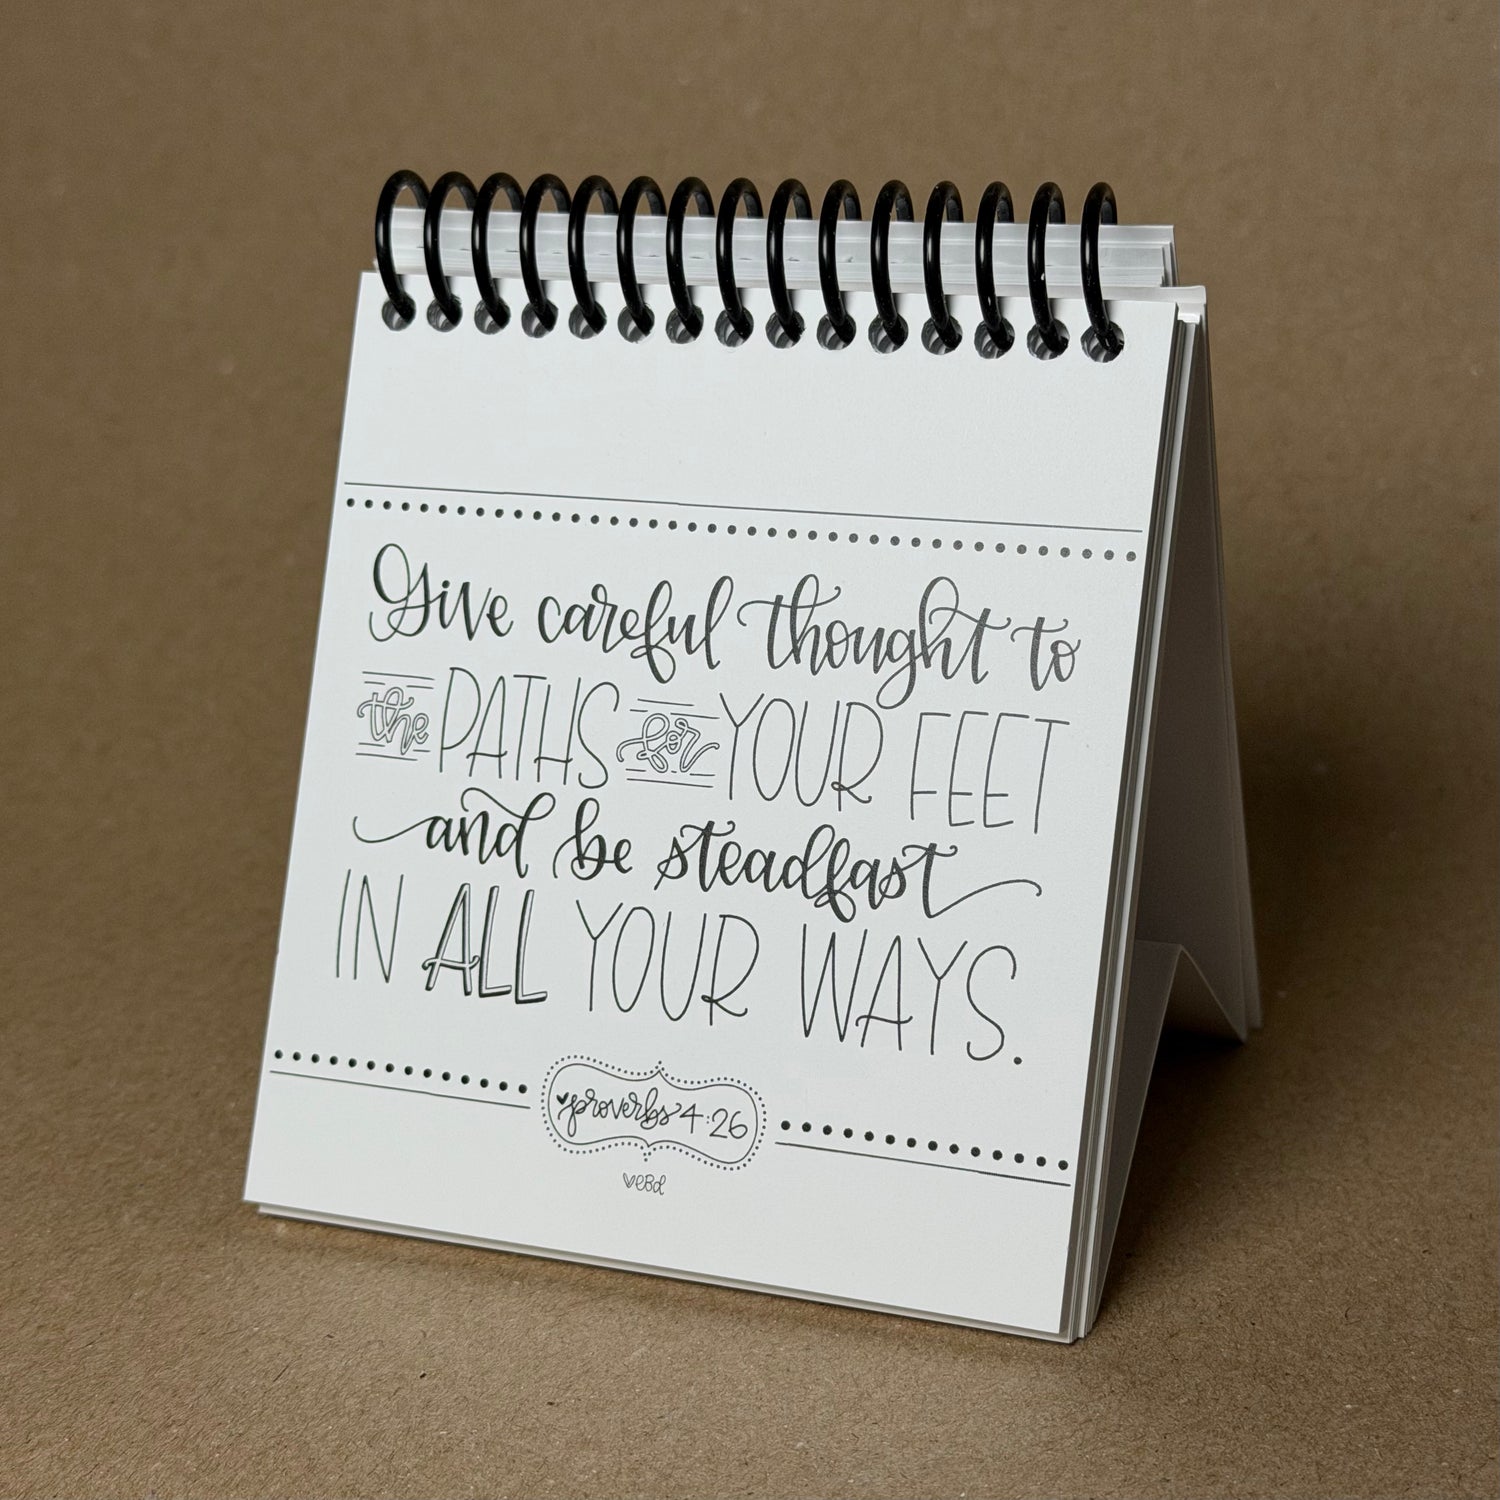 Give careful thought to
the PATHS for YOUR FEET
and be steadfast
IN ALL YOUR WAYS.
proverbs 4:26